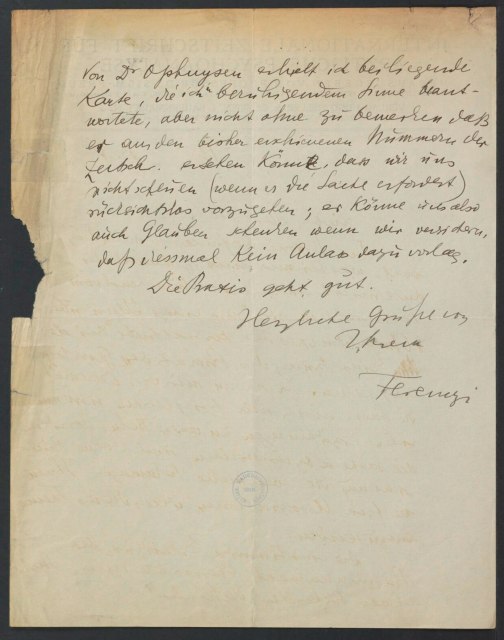 Von Dr Ophuijsen erhielt ich beiliegende
Karte, die ich in beruhigendem Sinne beant-
wortete, aber nicht ohne zu bemerken daß
er aus den bisher erschienenen Nummern der
Zeitsch. ersehen könnte, dass wir uns
nicht scheuen (wenn es die Sache erfordert)
rücksichtslos vorzugehen; er könne uns also
auch Glauben schenken wenn wir versichern,
daß diesmal kein Anlass dazu vorlag.
Die Praxis geht gut.
Herzliche Grüße von
Ihrem
Ferenczi